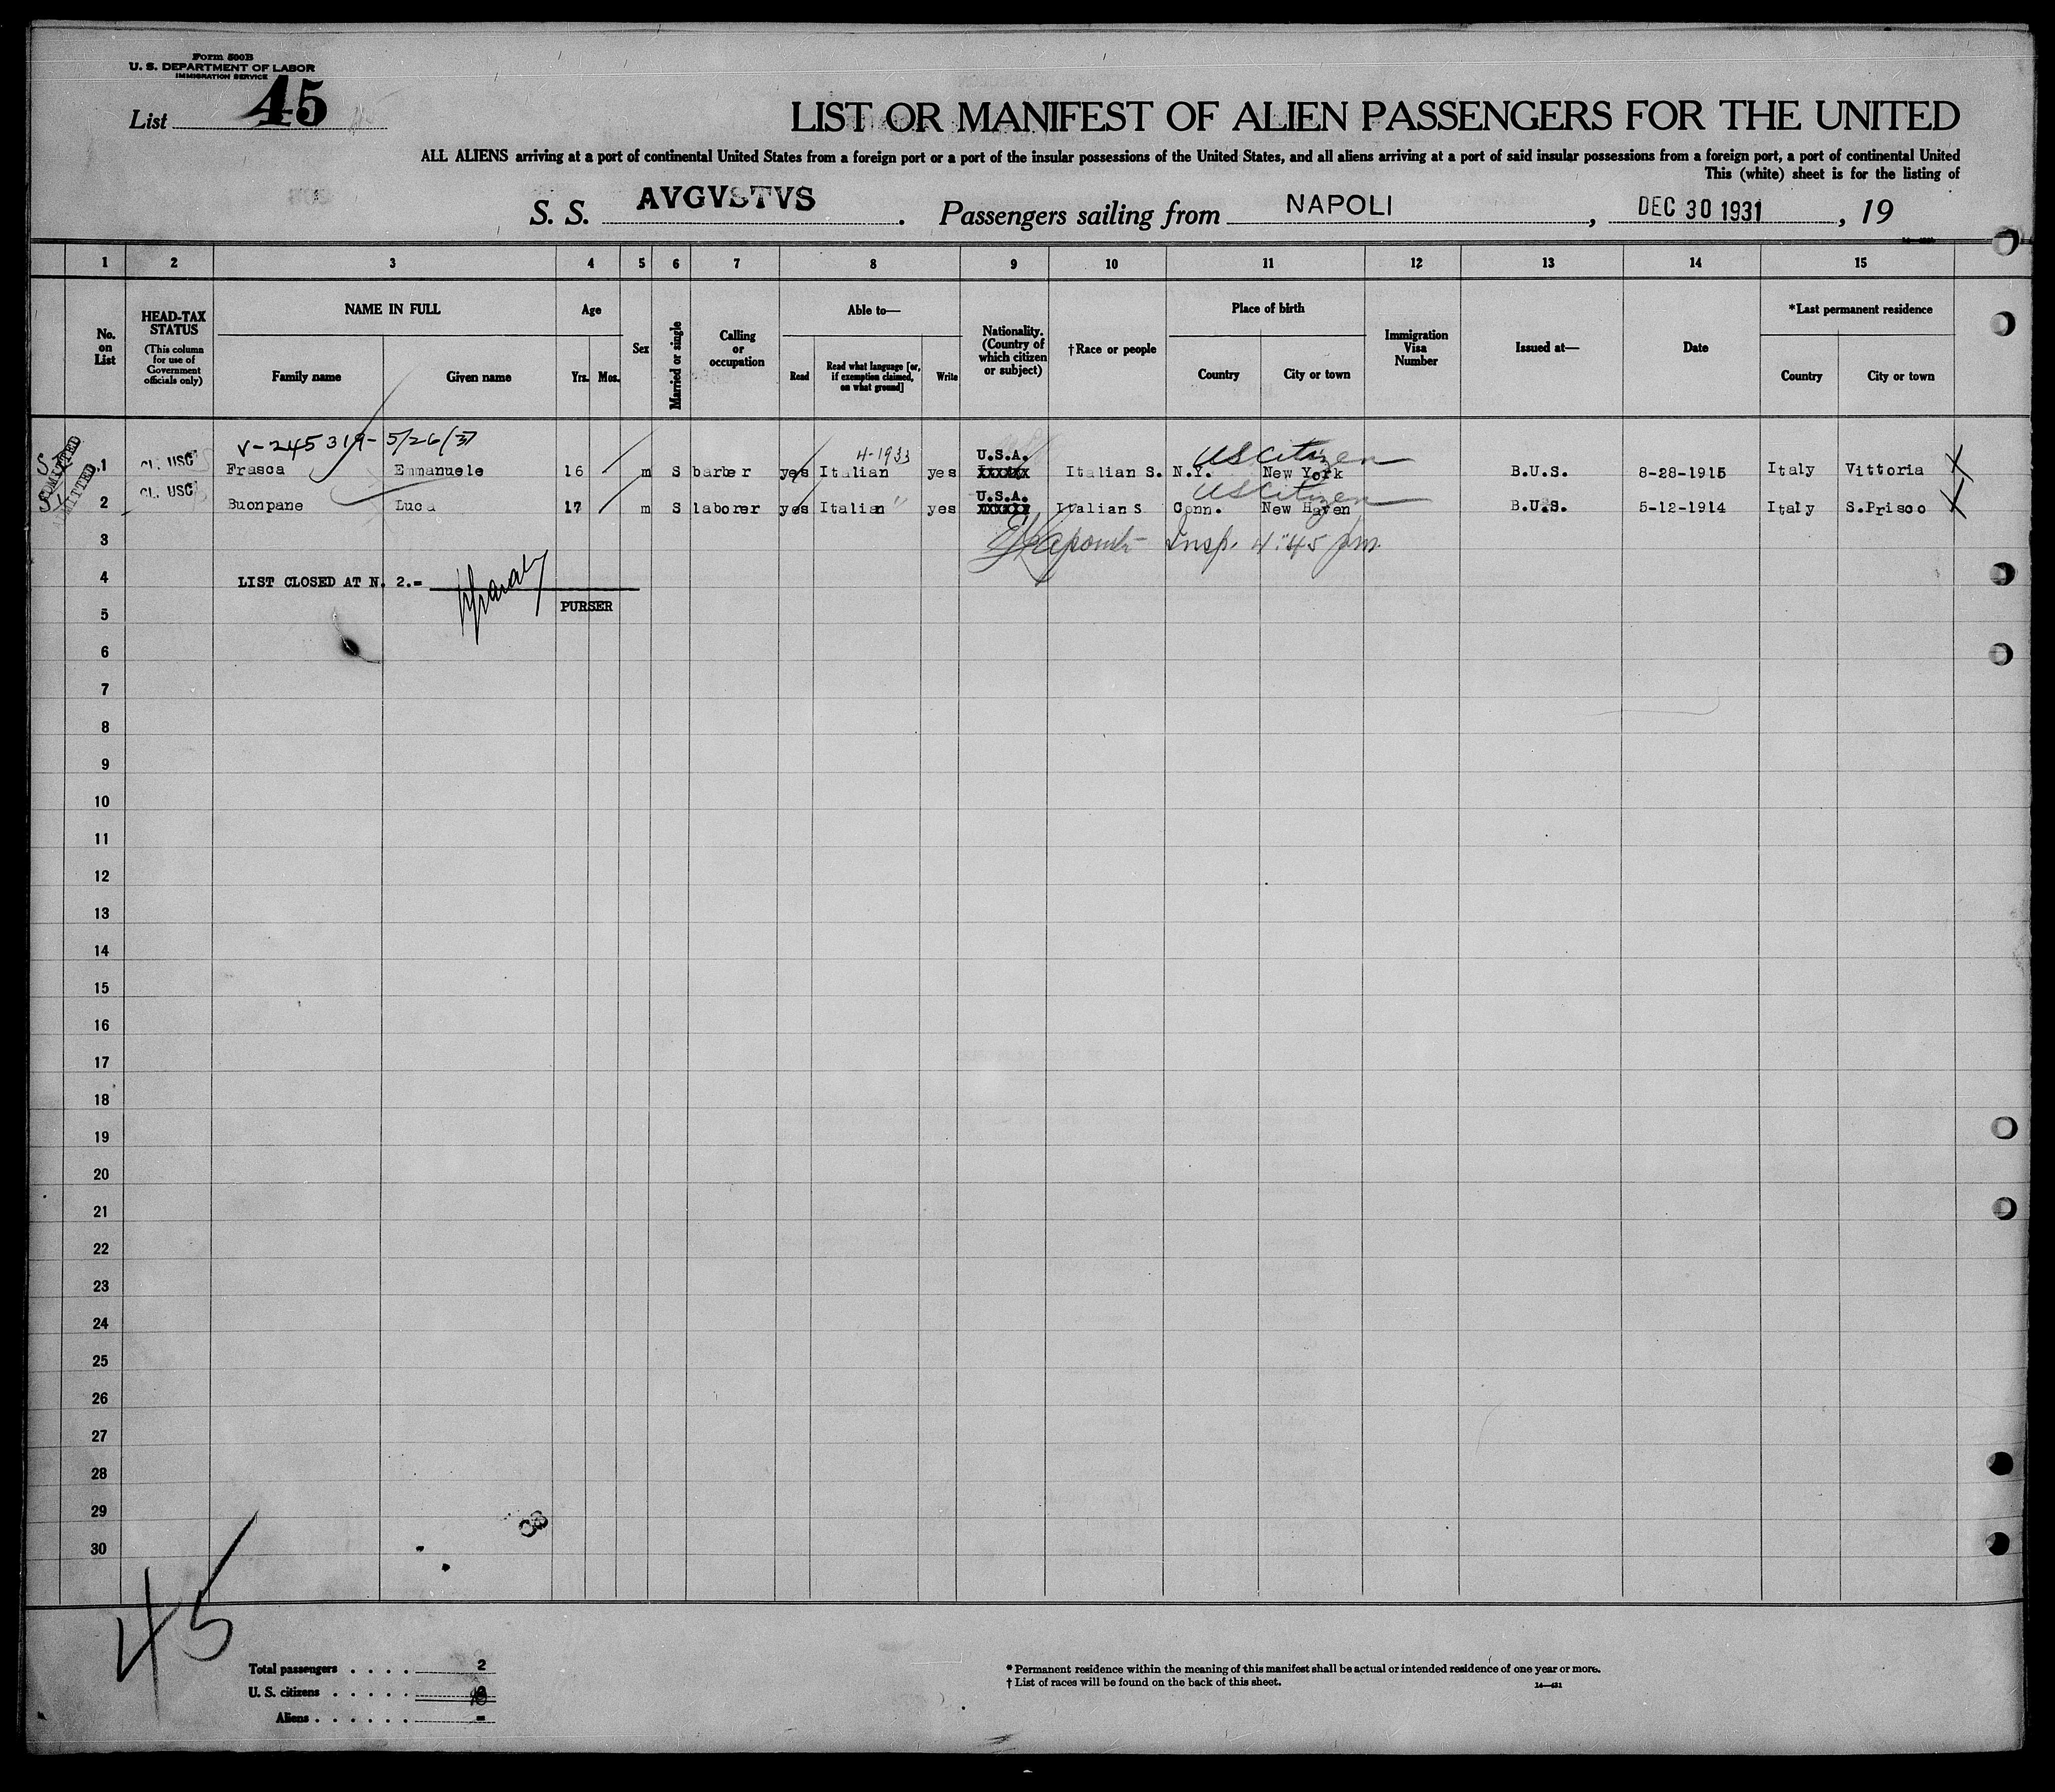 Form 500B
U. S. DEPARTMENT OF LABOR
IMMIGRATION SERVICE
List 45
LIST OR MANIFEST OF ALIEN PASSENGERS FOR THE UNITED
ALL ALIENS arriving at a port of continental United States from a foreign port or a port of the insular possessions of the United States, and all aliens arriving at a port of said insular possessions from a foreign port, a port of continental United
This (white) sheet is for the listing of
S. S. AVGVSTVS. Passengers sailing from NAPOLI, DEC 30 1931, 19
1 2 3 4 5 6 7 8 9 10 11 12 13 14 15
No. on List
HEAD-TAX STATUS
(This column for use of Government officials only)
NAME IN FULL
Family name Given name
Age
Yrs. Mos.
Sex
Married or single
Calling or occupation
Able to—
Read
Read what language [or, if exemption claimed, on what ground]
Write
Nationality. (Country of which citizen or subject)
†Race or people
Place of birth
Country City or town
Immigration Visa Number
Issued at—
Date
*Last permanent residence
Country City or town
V-245319- 5/26/37
4-1933
U.S.A. US Citizen
ADMITTED 1 USC Frasca Emmanuele 16 m S barber yes Italian yes xxxxxx Italian S. N.Y. New York B.U.S. 8-28-1915 Italy Vittoria
U.S.A. US Citizen
ADMITTED 2 USC Buonpane Luca 17 m S laborer yes Italian " yes xxxxxx Italian S Conn. New Haven B.U.S. 5-12-1914 Italy S.Prisco
3 Insp. 4:45 pm.
4 LIST CLOSED AT N. 2.-
PURSER
5
6
7
8
9
10
11
12
13
14
15
16
17
18
19
20
21
22
23
24
25
26
27
28
29
30
45
Total passengers . . . . 2
U. S. citizens . . . . .
Aliens . . . . . . -
* Permanent residence within the meaning of this manifest shall be actual or intended residence of one year or more.
† List of races will be found on the back of this sheet.
14—431